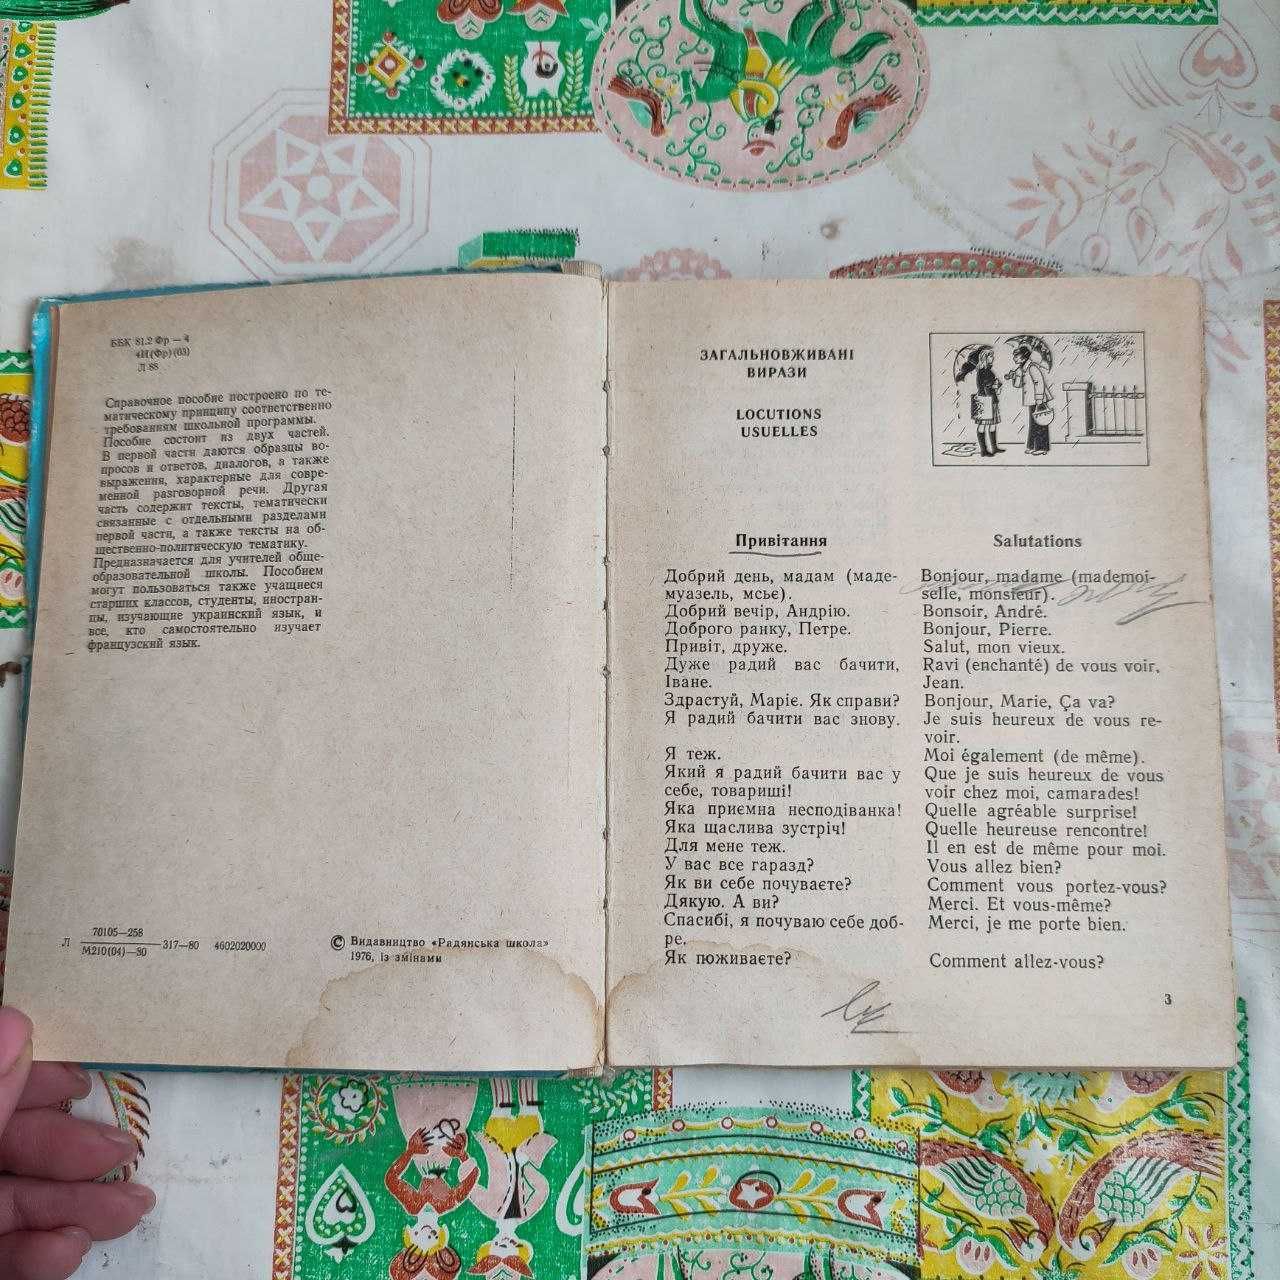 ББК 81.2 Фр — 4
4И(Фр)(03)
Л 88
Справочное пособие построено по те-
матическому принципу соответственно
требованиям школьной программы.
Пособие состоит из двух частей.
В первой части даются образцы во-
просов и ответов, диалогов, а также
выражения, характерные для совре-
менной разговорной речи. Другая
часть содержит тексты, тематически
связанные с отдельными разделами
первой части, а также тексты на об-
щественно-политическую тематику.
Предназначается для учителей обще-
образовательной школы. Пособием
могут пользоваться также учащиеся
старших классов, студенты, иностран-
цы, изучающие украинский язык, и
все, кто самостоятельно изучает
французский язык.
Л 70105—258
М210(04)—80 317—80 4602020000
© Видавництво «Радянська школа»
1976, із змінами
ЗАГАЛЬНОВЖИВАНІ
ВИРАЗИ
LOCUTIONS
USUELLES
Привітання
Добрий день, мадам (маде-
муазель, мсьє).
Добрий вечір, Андрію.
Доброго ранку, Петре.
Привіт, друже.
Дуже радий вас бачити,
Іване.
Здрастуй, Маріє. Як справи?
Я радий бачити вас знову.
Я теж.
Який я радий бачити вас у
себе, товариші!
Яка приємна несподіванка!
Яка щаслива зустріч!
Для мене теж.
У вас все гаразд?
Як ви себе почуваєте?
Дякую. А ви?
Спасибі, я почуваю себе доб-
ре.
Як поживаєте?
Salutations
Bonjour, madame (mademoi-
selle, monsieur).
Bonsoir, André.
Bonjour, Pierre.
Salut, mon vieux.
Ravi (enchanté) de vous voir,
Jean.
Bonjour, Marie, Ça va?
Je suis heureux de vous re-
voir.
Moi également (de même).
Que je suis heureux de vous
voir chez moi, camarades!
Quelle agréable surprise!
Quelle heureuse rencontre!
Il en est de même pour moi.
Vous allez bien?
Comment vous portez-vous?
Merci. Et vous-même?
Merci, je me porte bien.
Comment allez-vous?
3